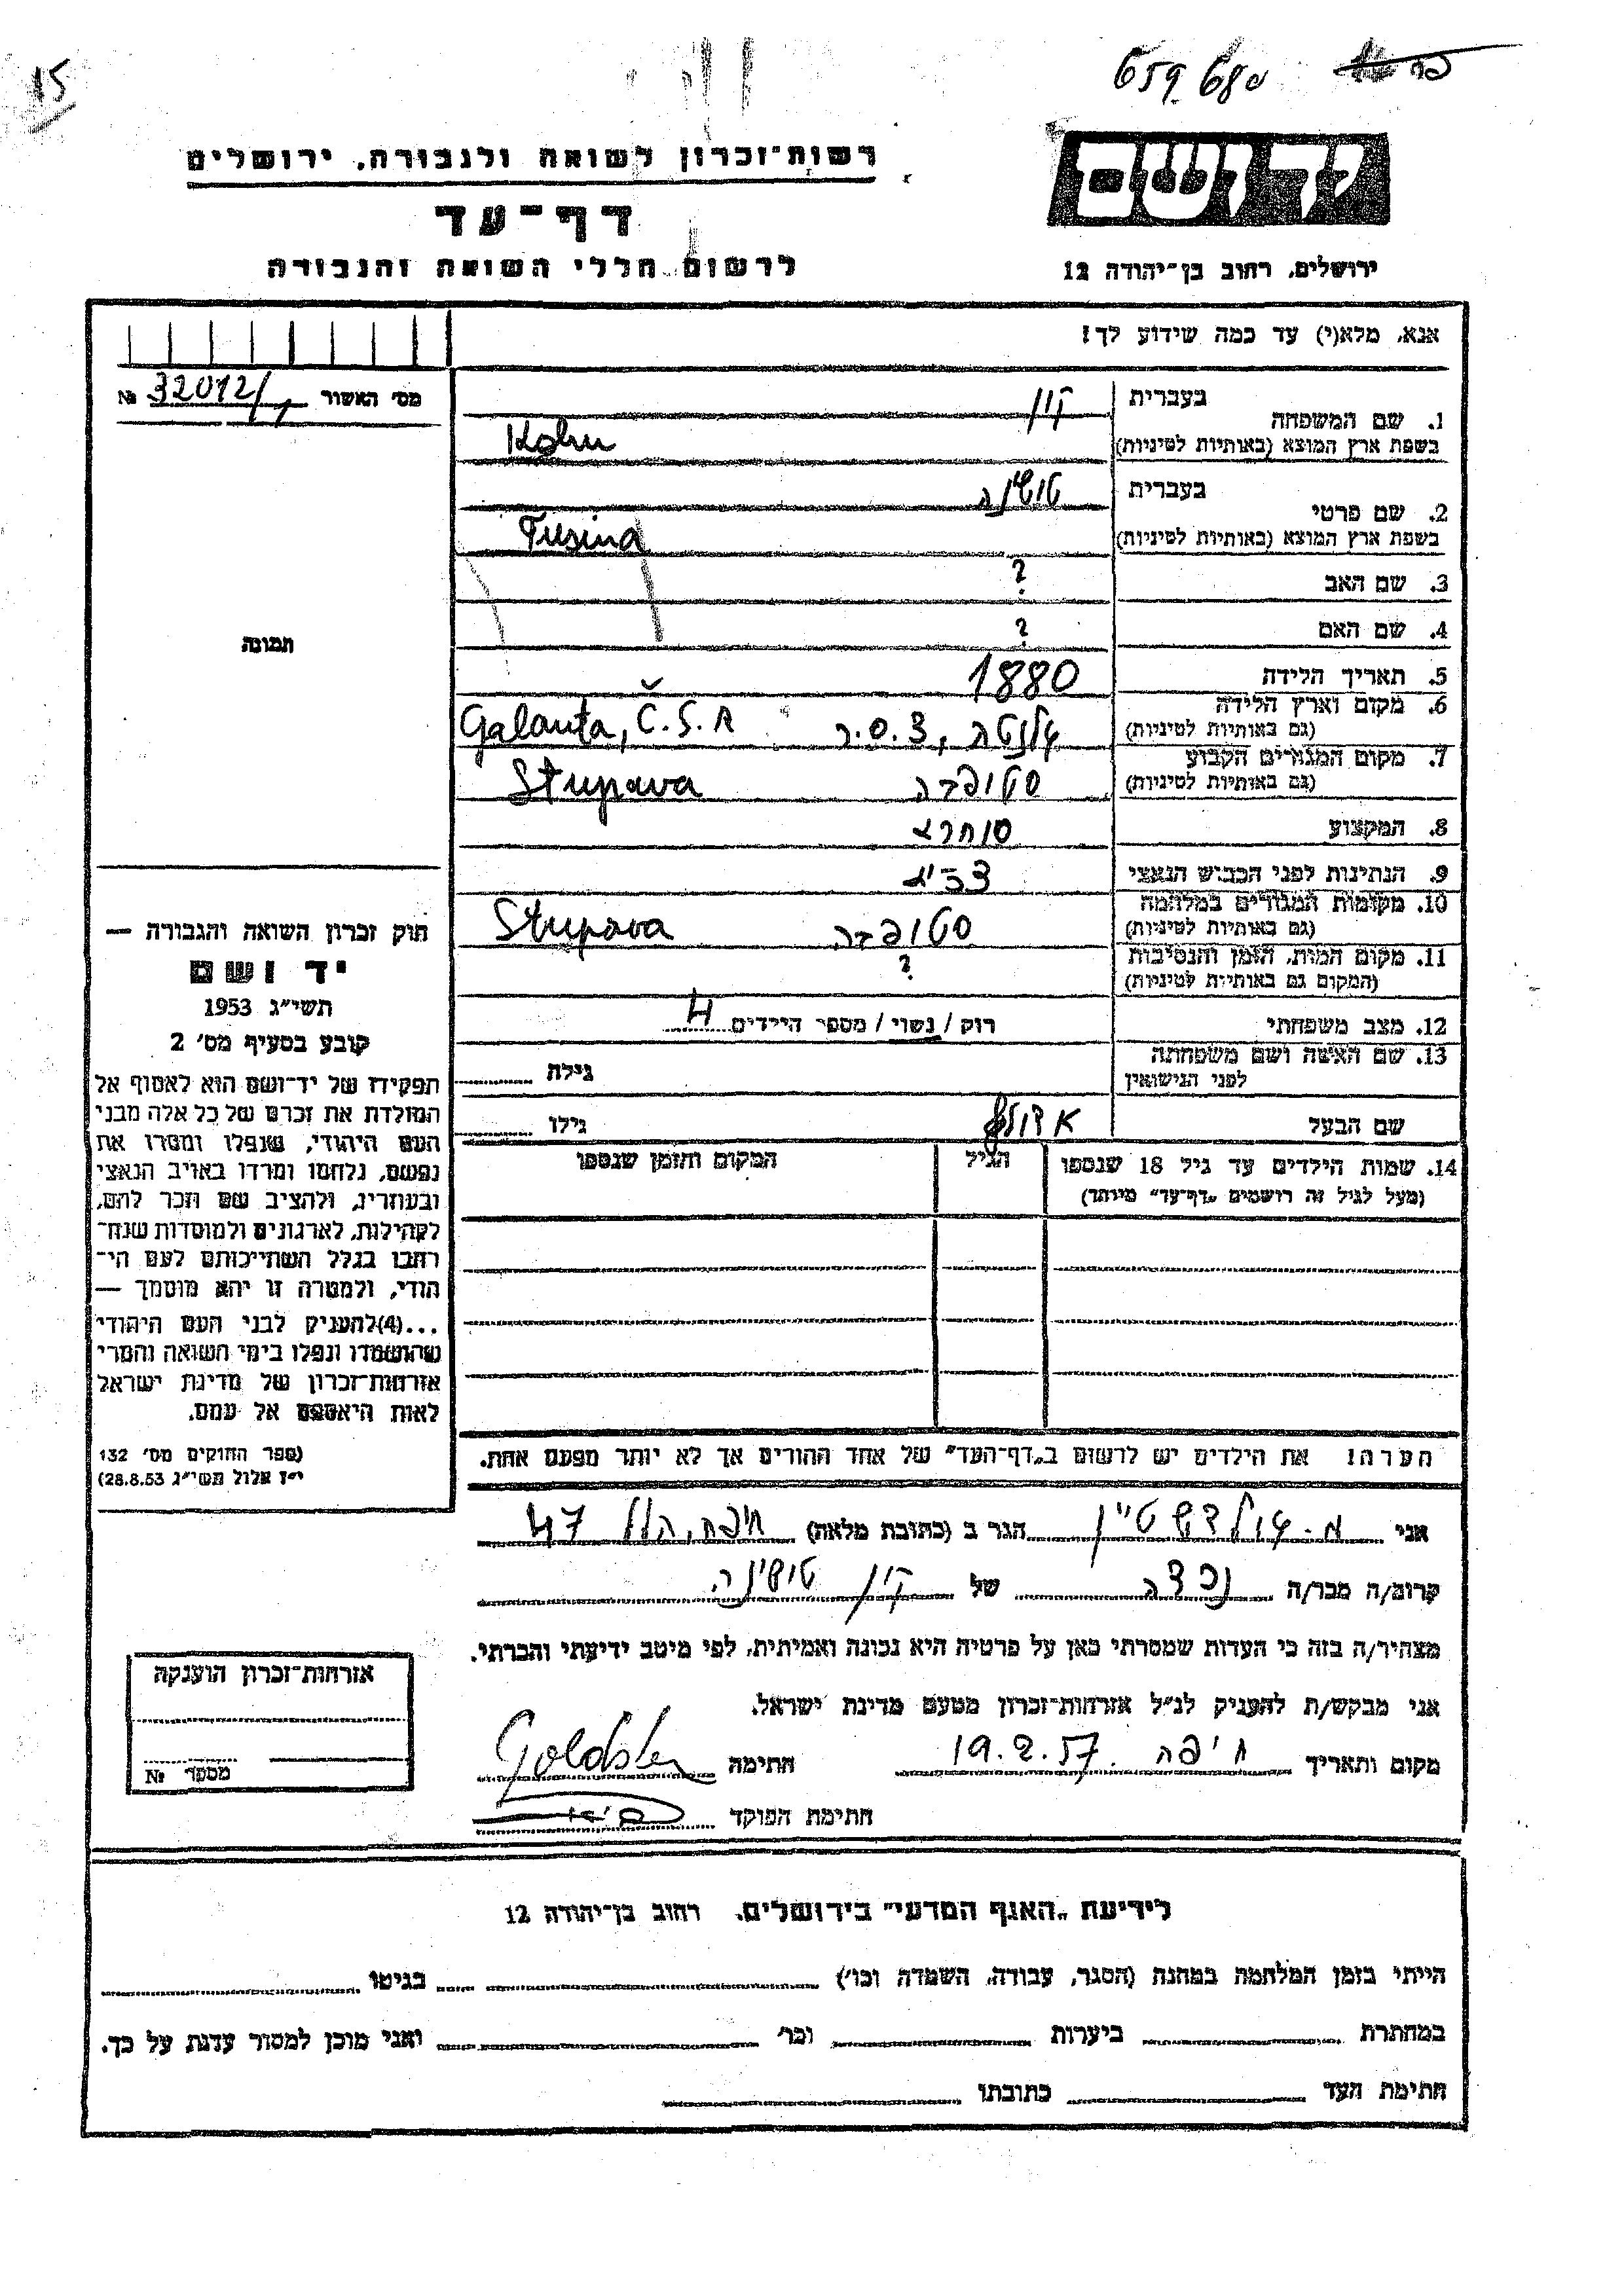 15
659 680
רשות־זכרון לשואה ולגבורה, ירושלים
דף־עד
לרשום חללי השואה והגבורה
ידושם
ירושלים, רחוב בן־יהודה 12
אנא, מלא(י) עד כמה שידוע לך!
מס׳ האשור № 32012/
תמונה
1. שם המשפחה בעברית קון
בשפת ארץ המוצא (באותיות לטיניות) Kohn
2. שם פרטי בעברית טושינה
בשפת ארץ המוצא (באותיות לטיניות) Tusina
3. שם האב ?
4. שם האם ?
5. תאריך הלידה 1880
6. מקום וארץ הלידה (גם באותיות לטיניות) גלנטה, צ.ס.ר Galanta, Č.S.R
7. מקום המגורים הקבוע (גם באותיות לטיניות) סטופבה Stupava
8. המקצוע סוחרא
9. הנתינות לפני הכבוש הנאצי צכ״א
10. מקומות המגורים במלחמה (גם באותיות לטיניות) סטופבה Stupava
11. מקום המות, הזמן והנסיבות (המקום גם באותיות לטיניות) ?
12. מצב משפחתי רוק / נשוי / מספר הילדים 4
13. שם האישה ושם משפחתה לפני הנישואין גילה
שם הבעל אדולף גילו
14. שמות הילדים עד גיל 18 שנספו הגיל המקום והזמן שנספו
(מעל לגיל זה רושמים „דף־עד" מיוחד)
הערה! את הילדים יש לרשום ב„דף־העד" של אחד ההורים אך לא יותר מפעם אחת.
חוק זכרון השואה והגבורה —
יד ושם
תשי״ג 1953
קובע בסעיף מס׳ 2
תפקידו של יד־ושם הוא לאסוף אל
המולדת את זכרם של כל אלה מבני
העם היהודי, שנפלו ומסרו את
נפשם, נלחמו ומרדו באויב הנאצי
ובעוזריו, ולהציב שם וזכר להם,
לקהילות, לארגונים ולמוסדות שנח־
רבו בגלל השתייכותם לעם הי־
הודי, ולמטרה זו יהא מוסמך —
...(4)להעניק לבני העם היהודי
שהושמדו ונפלו בימי השואה והמרי
אזרחות־זכרון של מדינת ישראל
לאות היאספם אל עמם.
(ספר החוקים מס׳ 132
י״ז אלול תשי״ג 28.8.53)
אני מ. גולדשטיין הגר ב (כתובת מלאה) חיפה, הלל 47
קרוב/ה מכר/ה נכדה של קון טושינה
מצהיר/ה בזה כי העדות שמסרתי כאן על פרטיה היא נכונה ואמיתית, לפי מיטב ידיעתי והכרתי.
אני מבקש/ת להעניק לנ״ל אזרחות־זכרון מטעם מדינת ישראל.
מקום ותאריך חיפה 19.2.57 חתימה Goldste
חתימת הפוקד
אזרחות־זכרון הוענקה
מספר №
לידיעת „האגף המדעי" בירושלים, רחוב בן־יהודה 12
הייתי בזמן המלחמה במחנה (הסגר, עבודה, השמדה וכו׳) בגיטו
במחתרת ביערות וכו׳ ואני מוכן למסור עדות על כך.
חתימת העד כתובתו